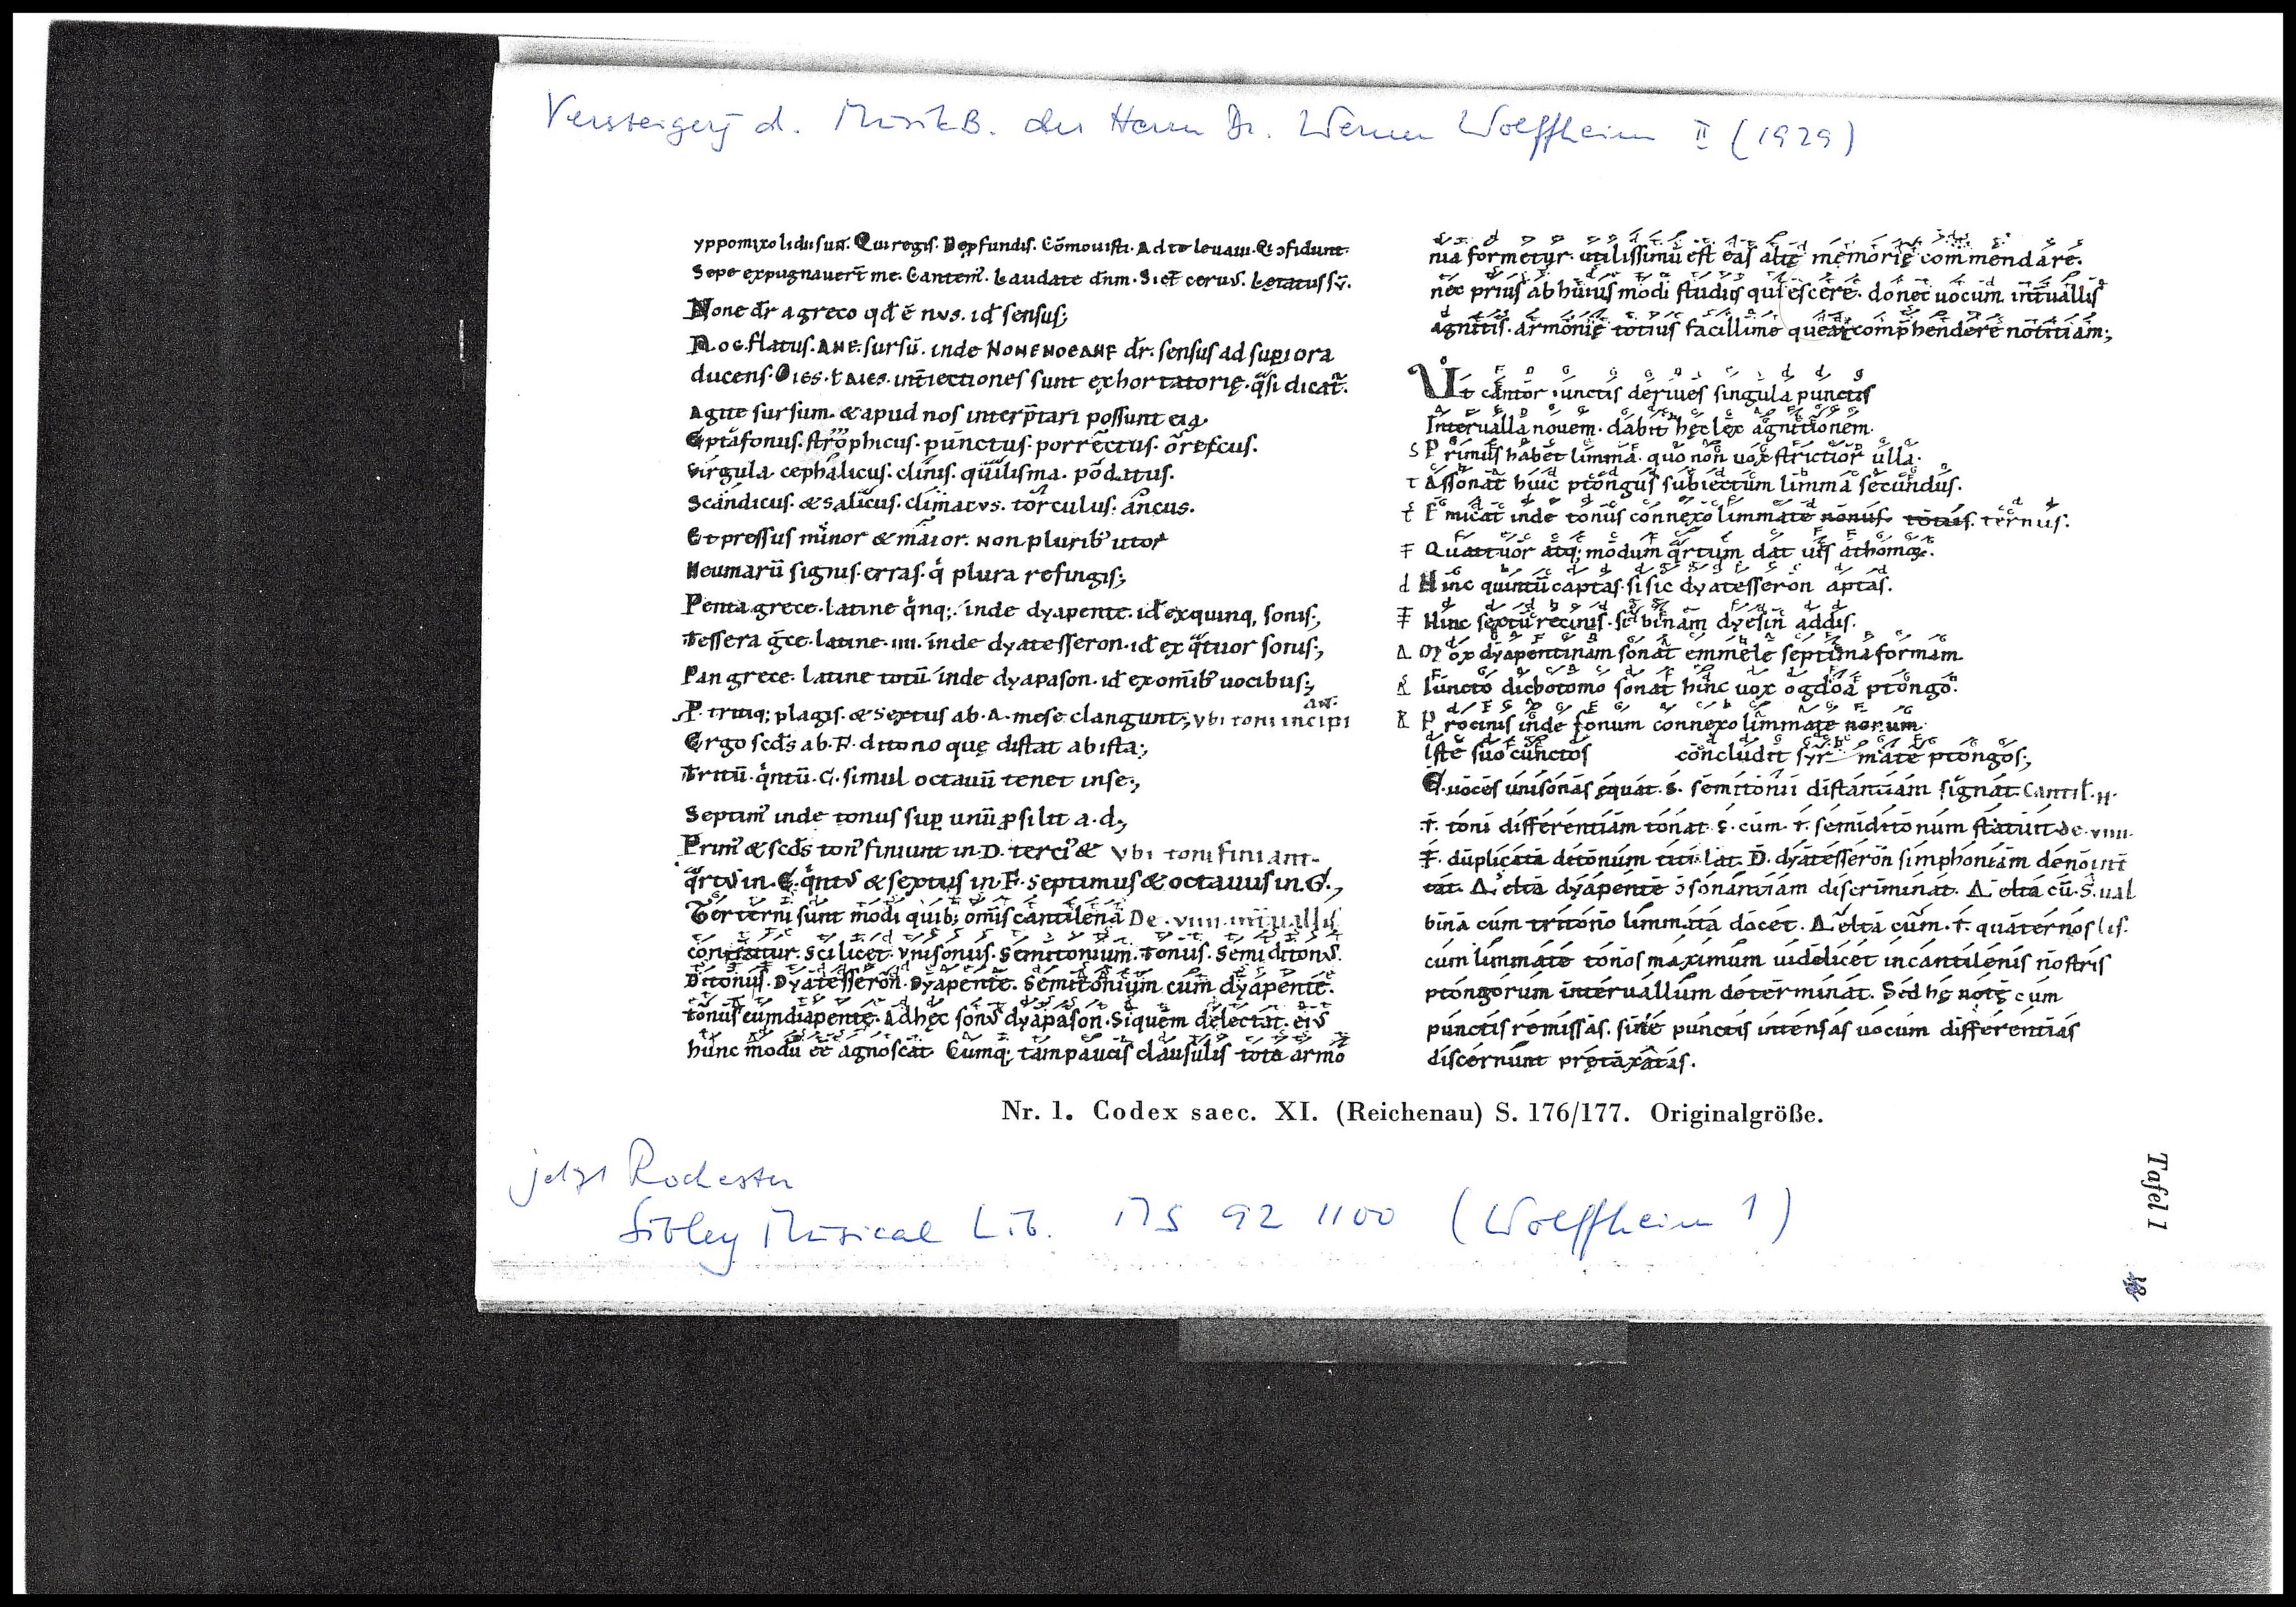 Versteigerg d. MusikB. des Herrn Dr. Werner Wolffheim II (1929)
yppomixolidii sunt. Qui regis. Deprofundis. Cōmouisti. Ad te leuaui. Qi ɔfidunt.
Sepe expugnauer̄t me. Cantem᷒. Laudate dn̄m. Sicet ceruus. Lętatus sū.
None dr̄ a greco qd̄ ē nvs. id̄ sensus;
Noe. flatus. ANE. sursū. inde NONENOEANE dr̄. sensus ad supiora
ducens. Oies. ł Aies. int̄iectiones sunt exhortatorię. q̄si dicat̄.
Agite sursum. & apud nos interp̄tari possunt eia.
Eptafonus. strophicus. punctus. porrectus. oriscus.
Virgula. cephalicus. clinis. quilisma. podatus.
Scandicus. & salicus. climacvs. torculus. ancus.
Et pressus minor & maior. Non plurib; utor
Neumarū signis. erras. q̇ plura refingis;
Penta grece. latine q̇nq;. inde dyapente. id̄ ex quinq, sonis;
Tessera gc̄e. latine. IIII. inde dyatesseron. id̄ ex q̄tuor sonis;
Pan grece. latine totū inde dyapason. id̄ ex om̄ib; uocibus;
P. trituq; plagis. & sextus ab. A. mese clangunt; vbi toni incipi
ant.
Ergo scd̄s ab. F. ditono quę distat ab ista;
Tritū. q̇ntū. C. simul octauū tenet in se;
Septim᷒ inde tonus sup unū psilit a. d;
Prim᷒ & scd̄s ton᷒ finiunt in. D. terci᷒ & vbi toni finiant.
q̄rtus in. E. q̇ntus & sextus in. F. Septimus & octauus in. G.;
Ter terni sunt modi quib; om̄is cantilena De. VIIII. int̄uallis
contexitur. Scilicet. Vnisonus. Semitonium. Tonus. Semiditonus.
Ditonus. Dyatesseron. Dyapente. Semitonium cum dyapente.
tonus cum diapente. Ad hęc sonus dyapason. Siquem delectat. eius
hunc modū eē agnoscat. Cumq; tam paucis clausulis tota armo
nia formetur. utilissimū est eas altę memorię commendare.
nec prius ab huius modi studiis quiescere. donec uocum int̄uallis
agnitis. armonię totius facillime queat comp̄hendere notitiam;
Ut cantor iunctis deriues singula punctis
Interualla nouem. dabit hęc lex agnitionem.
S Primus habet limma. quo non uox strictior ulla.
T Assonat huic ptongus subiectum limma secundus.
Ŧ Emicat inde tonus connexo limmate nonus. totius. ternus.
Ŧ Quattuor atq; modum q̄rtum dat uis athomoꝝ.
d Hinc quintū captas. si sic dyatesseron aptas.
Ŧ Hinc sextū recinis. si binam dyesin addis.
Δ Mox dyapentinam sonat emmele septima formam
Iuncto dichotomo sonat hinc uox ogdoa ptongo.
Procinis inde sonum connexo limmate nonum.
Iste suo cunctos concludit syrmate ptongos;
E. uoces unisonas ęquat. S. semitonii distantiam signat. Cantil. n.
T. toni differentiam tonat. S. cum. T. semiditonum statuit. De. VIIII.
Ŧ. duplicata ditonum titulat. D. dyatesseron simphoniam denoint̄
tat. Δelta dyapente ɔsonantiam discriminat. Δelta cū. S. ual
bina cum tritono limmata docet. Δelta cum. T. quaternos lis.
cum limmate tonos maximum uidelicet in cantilenis nostris
ptongorum interuallum determinat. Sed hę notę cum
punctis remissas. sine punctis intensas uocum differentias
discernunt pretaxatas.
Nr. 1. Codex saec. XI. (Reichenau) S. 176/177. Originalgröße.
jetzt Rochester
Sibley Musical Lib. MS 92 1100 (Wolffheim 1)
Tafel 1